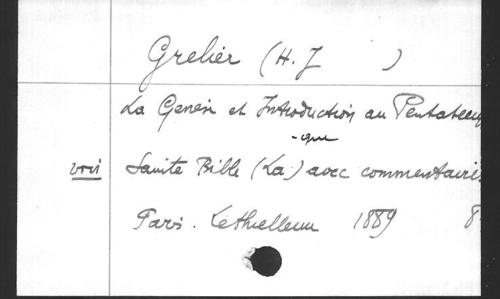 Grelier (H. J )
La Genèse et Introduction au Pentateu
-que
voir Sainte Bible (La) avec commentaires
Paris. Lethielleux 1889 8